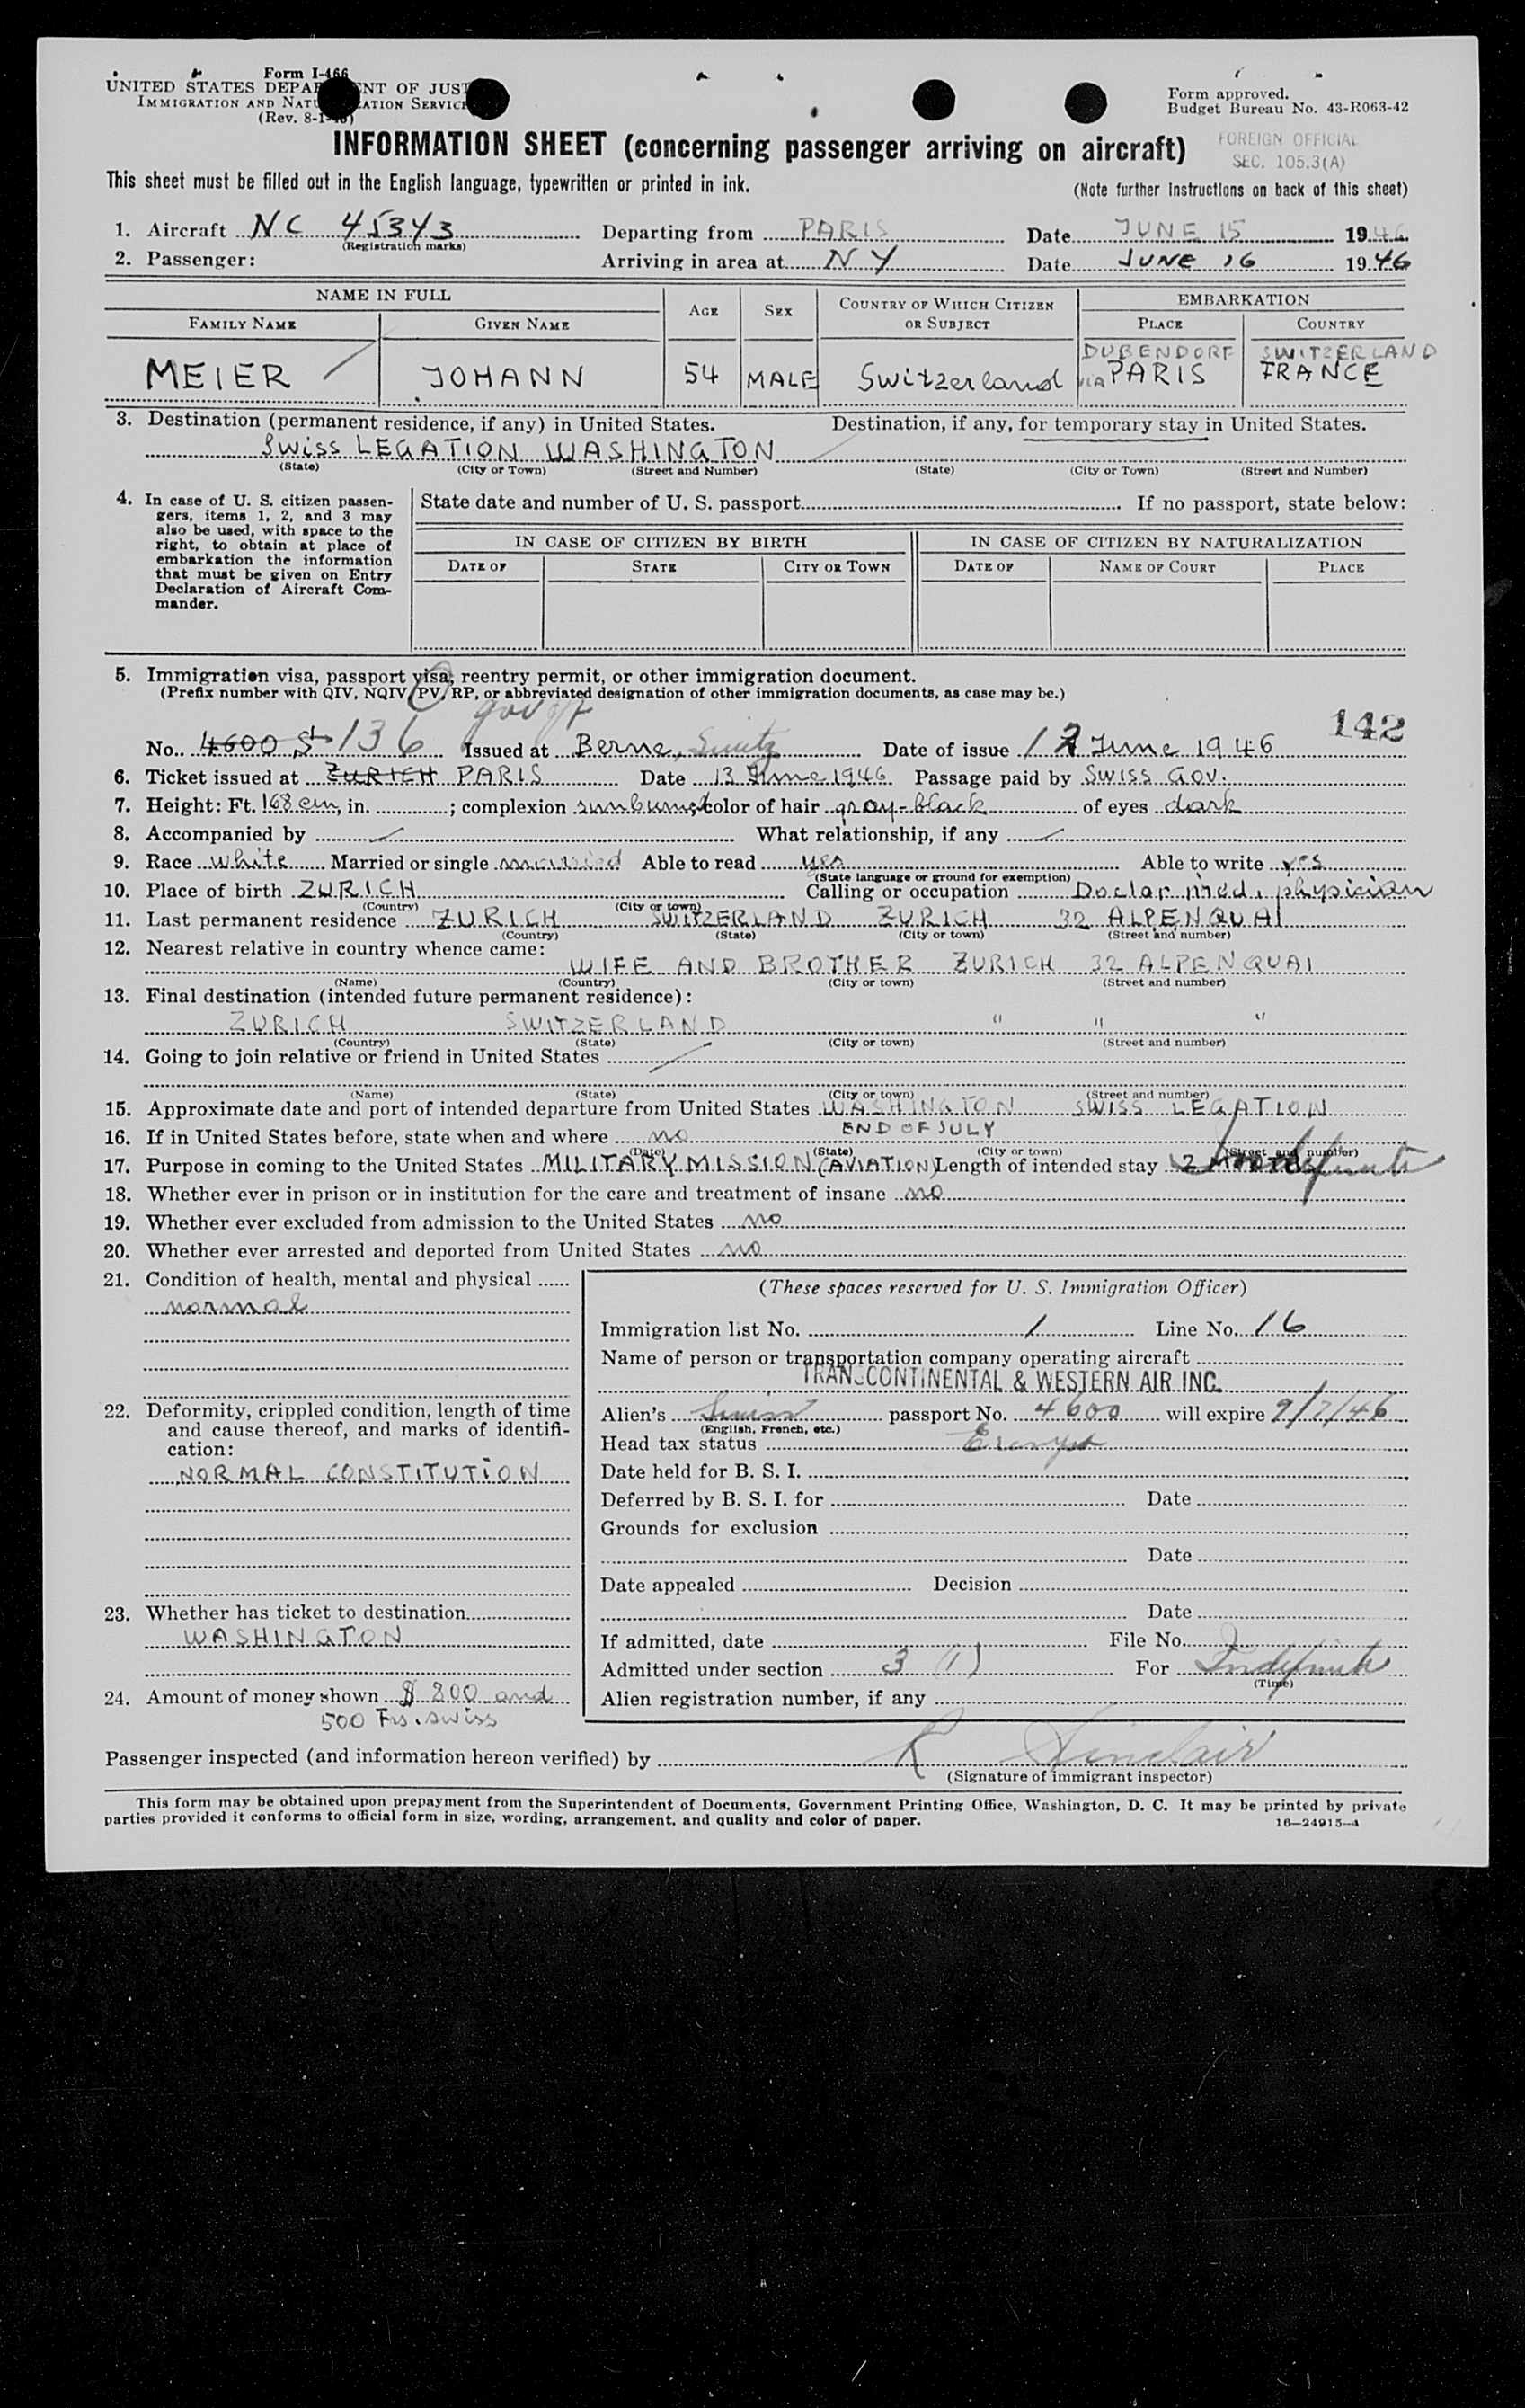 Form I-466
UNITED STATES DEPA NT OF JUS
IMMIGRATION AND NATU ATION SERVIC
(Rev. 8-1- )
Form approved.
Budget Bureau No. 43-R063-42
INFORMATION SHEET (concerning passenger arriving on aircraft)
FOREIGN OFFICIAL
SEC. 105.3(A)
This sheet must be filled out in the English language, typewritten or printed in ink.
(Note further instructions on back of this sheet)
1. Aircraft NC 45343 Departing from PARIS Date JUNE 15 1946
(Registration marks)
2. Passenger: Arriving in area at NY Date JUNE 16 1946
NAME IN FULL AGE SEX COUNTRY OF WHICH CITIZEN OR SUBJECT EMBARKATION
FAMILY NAME GIVEN NAME PLACE COUNTRY
DUBENDORF SWITZERLAND
MEIER JOHANN 54 MALE Switzerland VIA PARIS FRANCE
3. Destination (permanent residence, if any) in United States. Destination, if any, for temporary stay in United States.
Swiss LEGATION WASHINGTON
(State) (City or Town) (Street and Number) (State) (City or Town) (Street and Number)
4. In case of U. S. citizen passen-
gers, items 1, 2, and 3 may
also be used, with space to the
right, to obtain at place of
embarkation the information
that must be given on Entry
Declaration of Aircraft Com-
mander.
State date and number of U. S. passport If no passport, state below:
IN CASE OF CITIZEN BY BIRTH IN CASE OF CITIZEN BY NATURALIZATION
DATE OF STATE CITY OR TOWN DATE OF NAME OF COURT PLACE
5. Immigration visa, passport visa, reentry permit, or other immigration document.
(Prefix number with QIV, NQIV, PV, RP, or abbreviated designation of other immigration documents, as case may be.)
142
No. 4600 St 136 Issued at Berne, Switz Date of issue 12 June 1946
6. Ticket issued at ZURICH PARIS Date 13 June 1946 Passage paid by SWISS GOV.
7. Height: Ft. 168 cm, in. ; complexion sunburned color of hair gray-black of eyes dark
8. Accompanied by What relationship, if any
9. Race white Married or single married Able to read yes Able to write yes
(State language or ground for exemption)
10. Place of birth ZURICH Calling or occupation Doctor med. physician
(Country) (City or town)
11. Last permanent residence ZURICH SWITZERLAND ZURICH 32 ALPENQUAI
(Country) (State) (City or town) (Street and number)
12. Nearest relative in country whence came:
WIFE AND BROTHER ZURICH 32 ALPENQUAI
(Name) (Country) (City or town) (Street and number)
13. Final destination (intended future permanent residence):
ZURICH SWITZERLAND " " "
(Country) (State) (City or town) (Street and number)
14. Going to join relative or friend in United States
(Name) (State) (City or town) (Street and number)
15. Approximate date and port of intended departure from United States WASHINGTON SWISS LEGATION
END OF JULY
16. If in United States before, state when and where no
(Date) (State) (City or town) (Street and number)
17. Purpose in coming to the United States MILITARY MISSION (AVIATION) Length of intended stay 2 Indefinite
18. Whether ever in prison or in institution for the care and treatment of insane no
19. Whether ever excluded from admission to the United States no
20. Whether ever arrested and deported from United States no
21. Condition of health, mental and physical
normal
22. Deformity, crippled condition, length of time
and cause thereof, and marks of identifi-
cation:
NORMAL CONSTITUTION
23. Whether has ticket to destination
WASHINGTON
24. Amount of money shown $ 800 and
500 Frs. swiss
(These spaces reserved for U. S. Immigration Officer)
Immigration list No. 1 Line No. 16
Name of person or transportation company operating aircraft
TRANSCONTINENTAL & WESTERN AIR INC.
Alien's Swiss passport No. 4600 will expire 9/7/46
(English, French, etc.)
Head tax status Exempt
Date held for B. S. I.
Deferred by B. S. I. for Date
Grounds for exclusion
Date
Date appealed Decision
Date
If admitted, date File No.
Admitted under section 3 (1) For Indefinite
(Time)
Alien registration number, if any
Passenger inspected (and information hereon verified) by R Sinclair
(Signature of immigrant inspector)
This form may be obtained upon prepayment from the Superintendent of Documents, Government Printing Office, Washington, D. C. It may be printed by private
parties provided it conforms to official form in size, wording, arrangement, and quality and color of paper.
16—24915-4